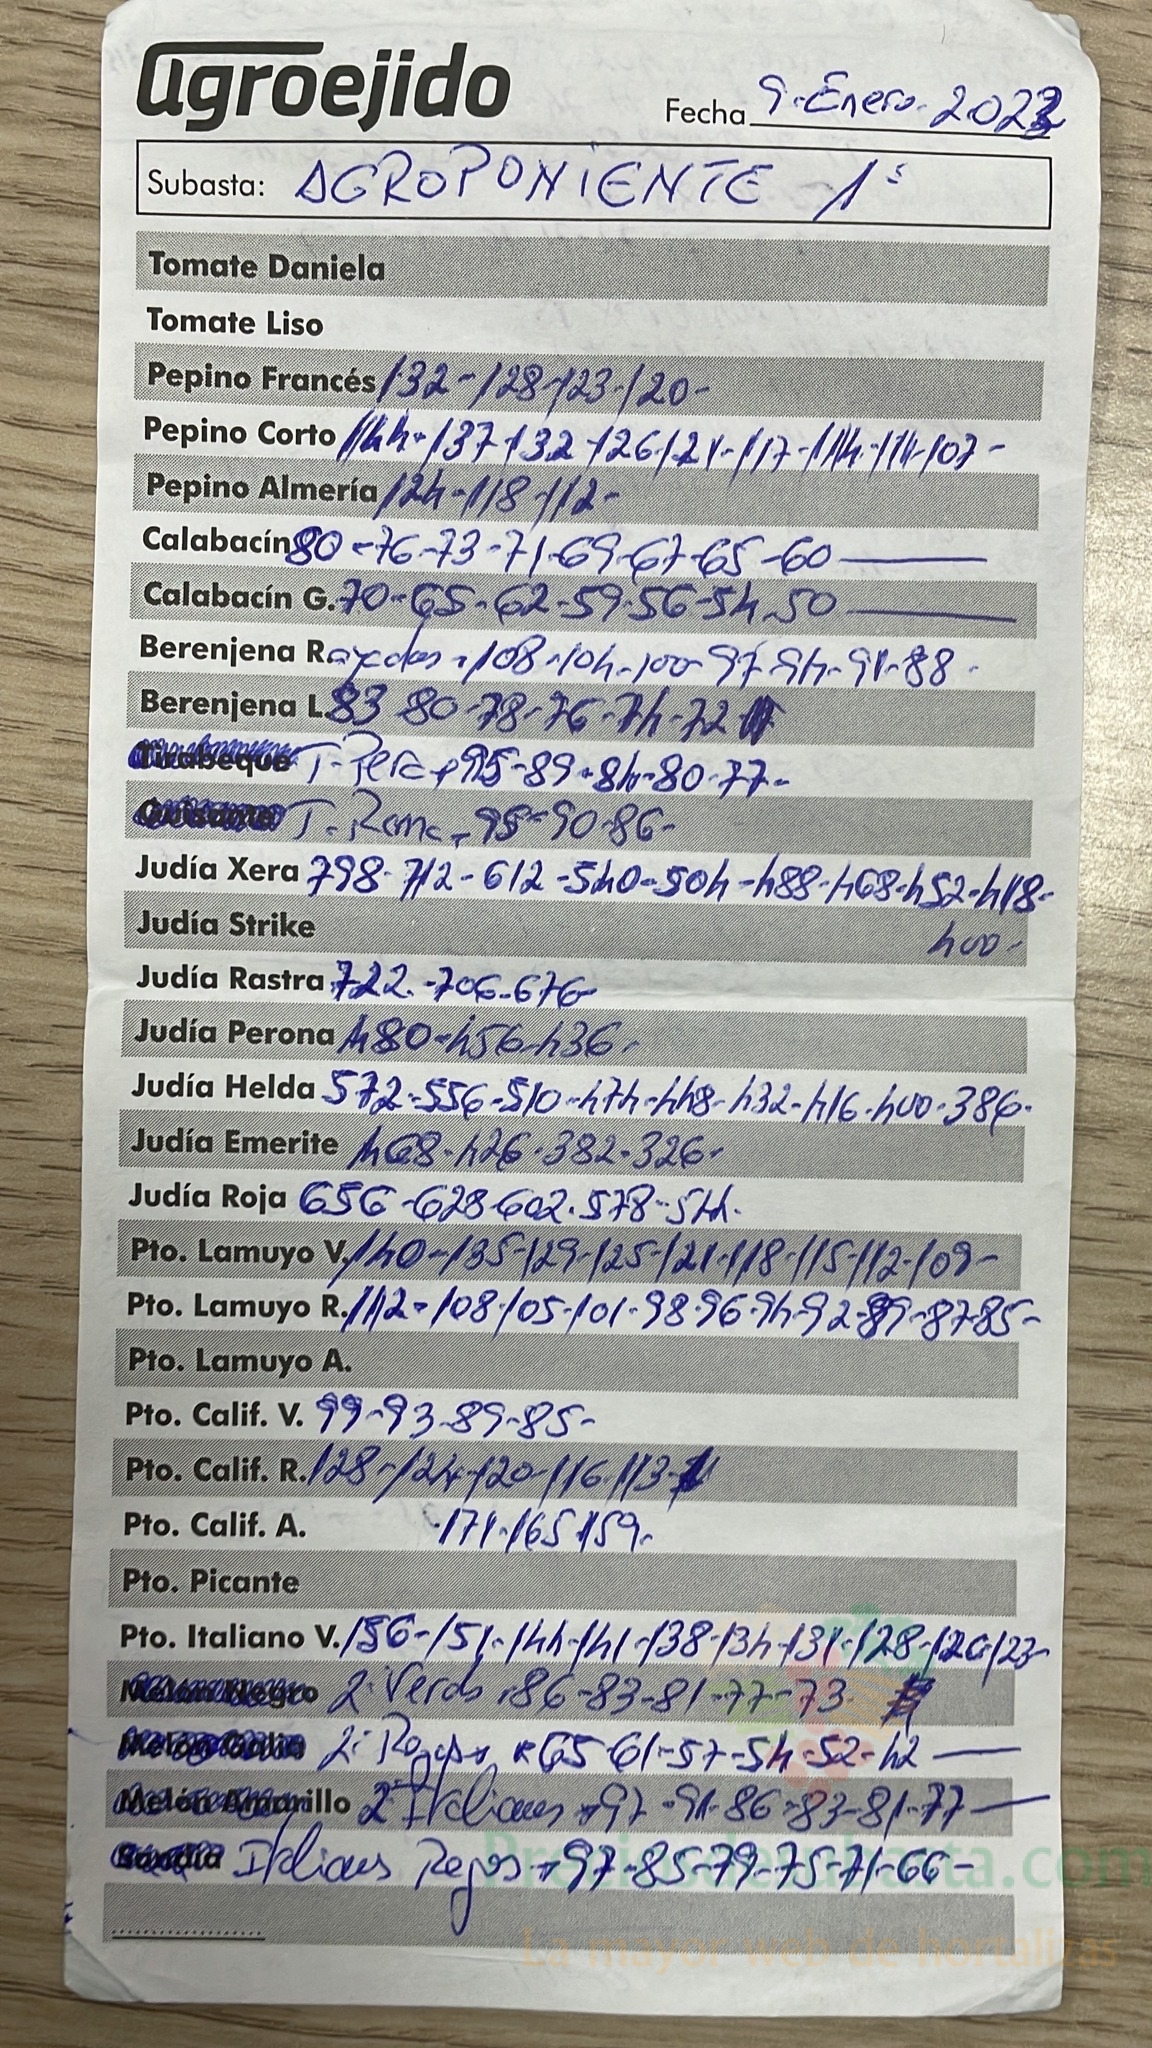 agroejido
Fecha 9-Enero-2023
Subasta: AGROPONIENTE 1ª
Tomate Daniela
Tomate Liso
Pepino Francés 132-128-123-120-
Pepino Corto 144-137-132-126-121-117-114-111-107-
Pepino Almería 124-118-112-
Calabacín 80-76-73-71-69-67-65-60
Calabacín G. 70-65-62-59-56-54-50
Berenjena Rayadas-108-104-100-97-94-91-88-
Berenjena L. 83 80-78-76-74-72
Tirabeque T-Pera-95-89-84-80-77-
Guisante T. Rama-95-90-86-
Judía Xera 798-712-612-540-504-488-468-452-418-
Judía Strike 400-
Judía Rastra 722-706-676-
Judía Perona 480-456-436-
Judía Helda 572-556-510-474-448-432-416-400-386-
Judía Emerite 468-426-382-326-
Judía Roja 656-628-602-578-544-
Pto. Lamuyo V. 140-135-129-125-121-118-115-112-109-
Pto. Lamuyo R. 112-108-105-101-98-96-94-92-89-87-85-
Pto. Lamuyo A.
Pto. Calif. V. 99-93-89-85-
Pto. Calif. R. 128-124-120-116-113-
Pto. Calif. A. 171-165-159-
Pto. Picante
Pto. Italiano V. 156-151-144-141-138-134-131-128-126-123-
Melón Negro 2ª Verdes-86-83-81-77-73-
Melón Galia 2ª Rojos-65-61-57-54-52-42
Melón Amarillo 2ª Italianos-97-91-86-83-81-77
Sandía Italianos Rojos-97-85-79-75-71-66-
Preciosdesubasta.com
La mayor web de hortalizas